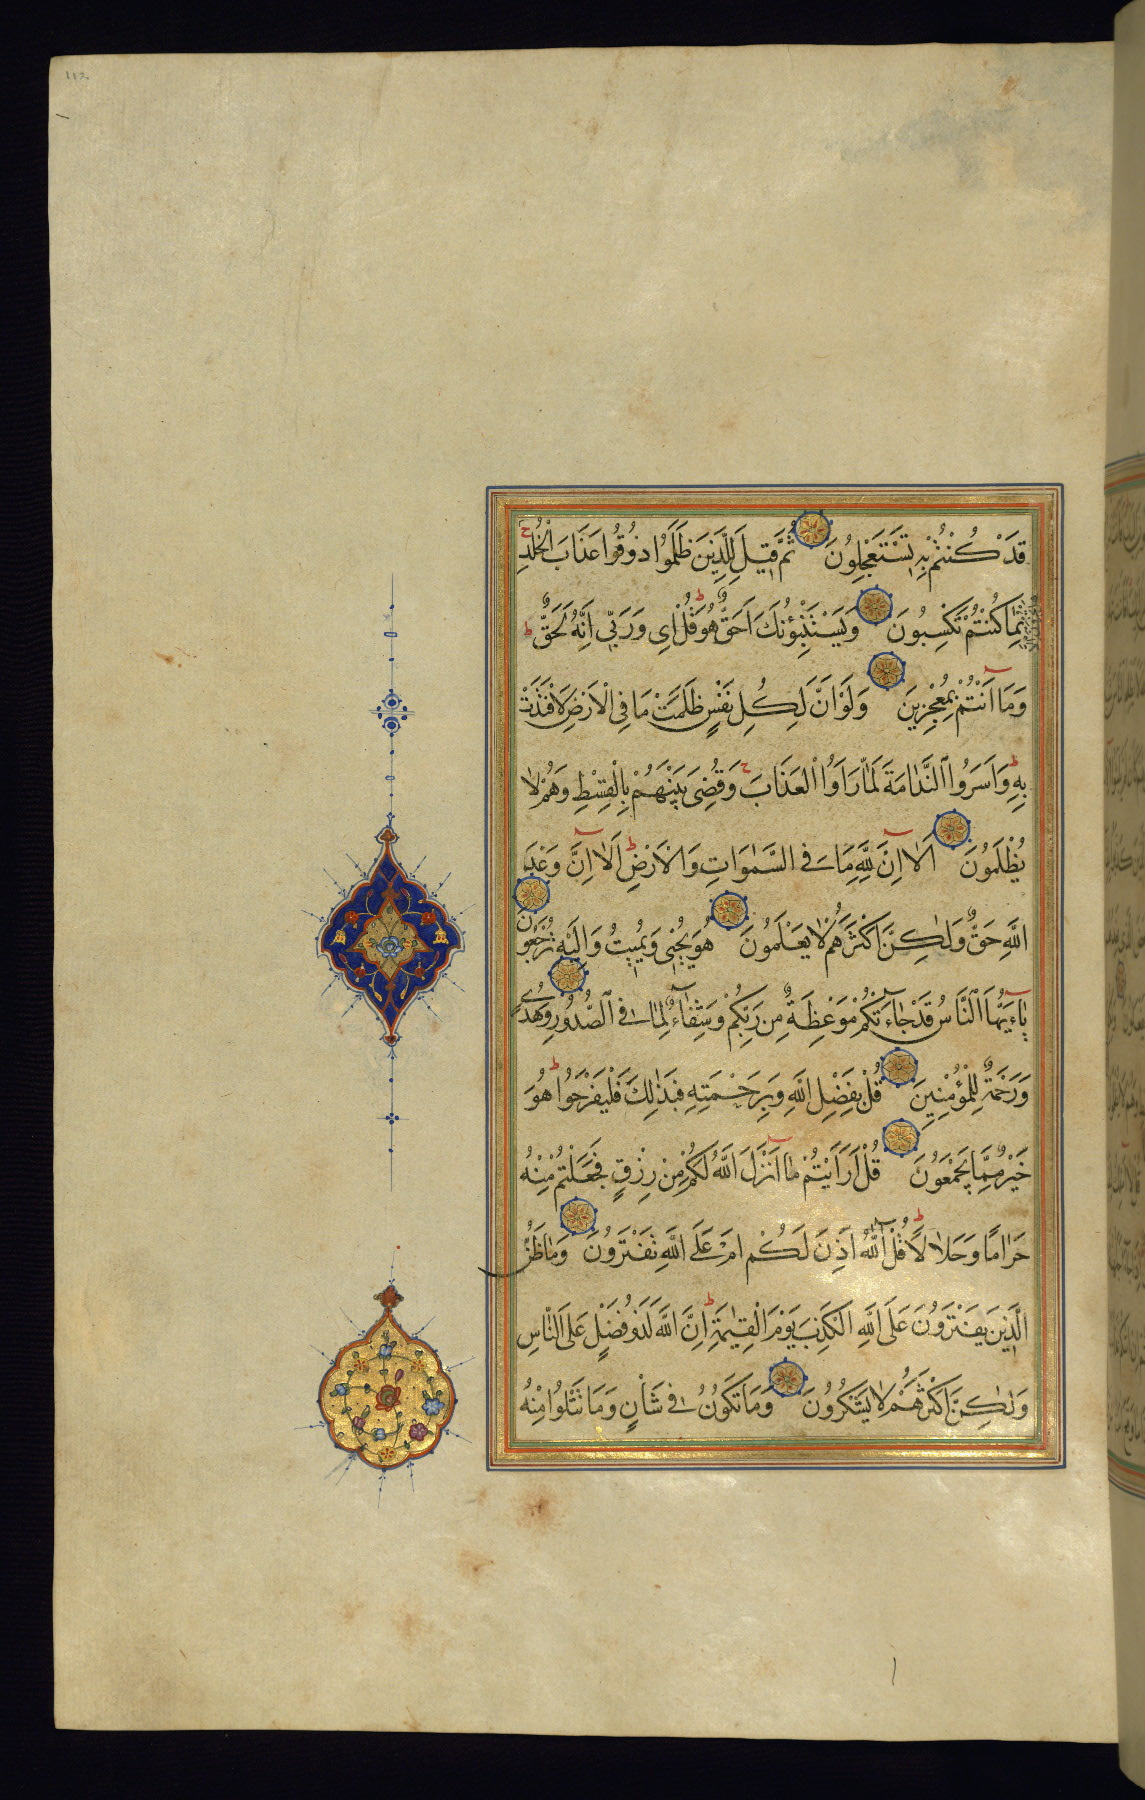 ١١٢
قَدْ كُنْتُمْ بِهِ تَسْتَعْجِلُونَ ثُمَّ قِيلَ لِلَّذِينَ ظَلَمُوا ذُوقُوا عَذَابَ الْخُلْدِ
بِمَا كُنْتُمْ تَكْسِبُونَ وَيَسْتَنْبِؤُنَكَ اَحَقٌّ هُوَ قُلْ اِى وَرَبِّى اِنَّهُ لَحَقٌّ
وَمَا اَنْتُمْ بِمُعْجِزِينَ وَلَوْ اَنَّ لِكُلِّ نَفْسٍ ظَلَمَتْ مَا فِى الْاَرْضِ لَافْتَدَتْ
بِهِ وَاَسَرُّوا النَّدَامَةَ لَمَّا رَاَوُا الْعَذَابَ وَقُضِىَ بَيْنَهُمْ بِالْقِسْطِ وَهُمْ لَا
يُظْلَمُونَ اَلَا اِنَّ لِلَّهِ مَا فِى السَّمٰوَاتِ وَالْاَرْضِ اَلَا اِنَّ وَعْدَ
اللَّهِ حَقٌّ وَلٰكِنَّ اَكْثَرَهُمْ لَا يَعْلَمُونَ هُوَ يُحْيِى وَيُمِيتُ وَاِلَيْهِ تُرْجَعُونَ
يَاءَيُّهَا النَّاسُ قَدْ جَاءَتْكُمْ مَوْعِظَةٌ مِنْ رَبِّكُمْ وَشِفَاءٌ لِمَا فِى الصُّدُورِ وَهُدًى
وَرَحْمَةٌ لِلْمُؤْمِنِينَ قُلْ بِفَضْلِ اللَّهِ وَبِرَحْمَتِهِ فَبِذٰلِكَ فَلْيَفْرَحُوا هُوَ
خَيْرٌ مِمَّا يَجْمَعُونَ قُلْ اَرَاَيْتُمْ مَا اَنْزَلَ اللَّهُ لَكُمْ مِنْ رِزْقٍ فَجَعَلْتُمْ مِنْهُ
حَرَامًا وَحَلَالًا قُلْ آللَّهُ اَذِنَ لَكُمْ اَمْ عَلَى اللَّهِ تَفْتَرُونَ وَمَا ظَنُّ
الَّذِينَ يَفْتَرُونَ عَلَى اللَّهِ الْكَذِبَ يَوْمَ الْقِيٰمَةِ اِنَّ اللَّهَ لَذُو فَضْلٍ عَلَى النَّاسِ
وَلٰكِنَّ اَكْثَرَهُمْ لَا يَشْكُرُونَ وَمَا تَكُونُ فِى شَأْنٍ وَمَا تَتْلُوا مِنْهُ